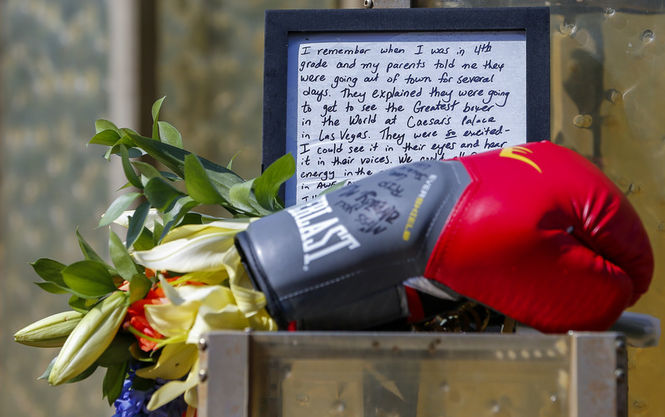 I remember when I was in 4th
grade and my parents told me they
were going out of town for several
days. They explained they were going
to get to see the Greatest boxer
in the World at Caesars Palace
in Las Vegas. They were so excited-
I could see it in their eyes and hear
it in their voices. We
energy in the
in
EVERLAST
EVERSHIELD